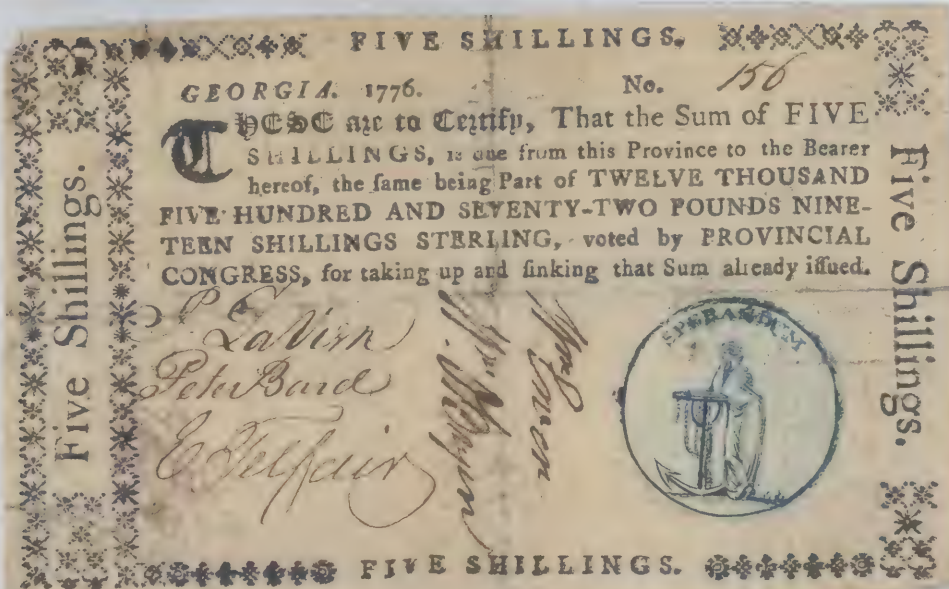 FIVE SHILLINGS.
GEORGIA. 1776. No. 156
THESE are to Certify, That the Sum of FIVE
SHILLINGS, is due from this Province to the Bearer
hereof, the ſame being Part of TWELVE THOUSAND
FIVE HUNDRED AND SEVENTY-TWO POUNDS NINE-
TEEN SHILLINGS STERLING, voted by PROVINCIAL
CONGRESS, for taking up and ſinking that Sum already iſſued.
Five Shillings.
Peter Bard
E Telfair
SPERANDUM
Five Shillings.
FIVE SHILLINGS.